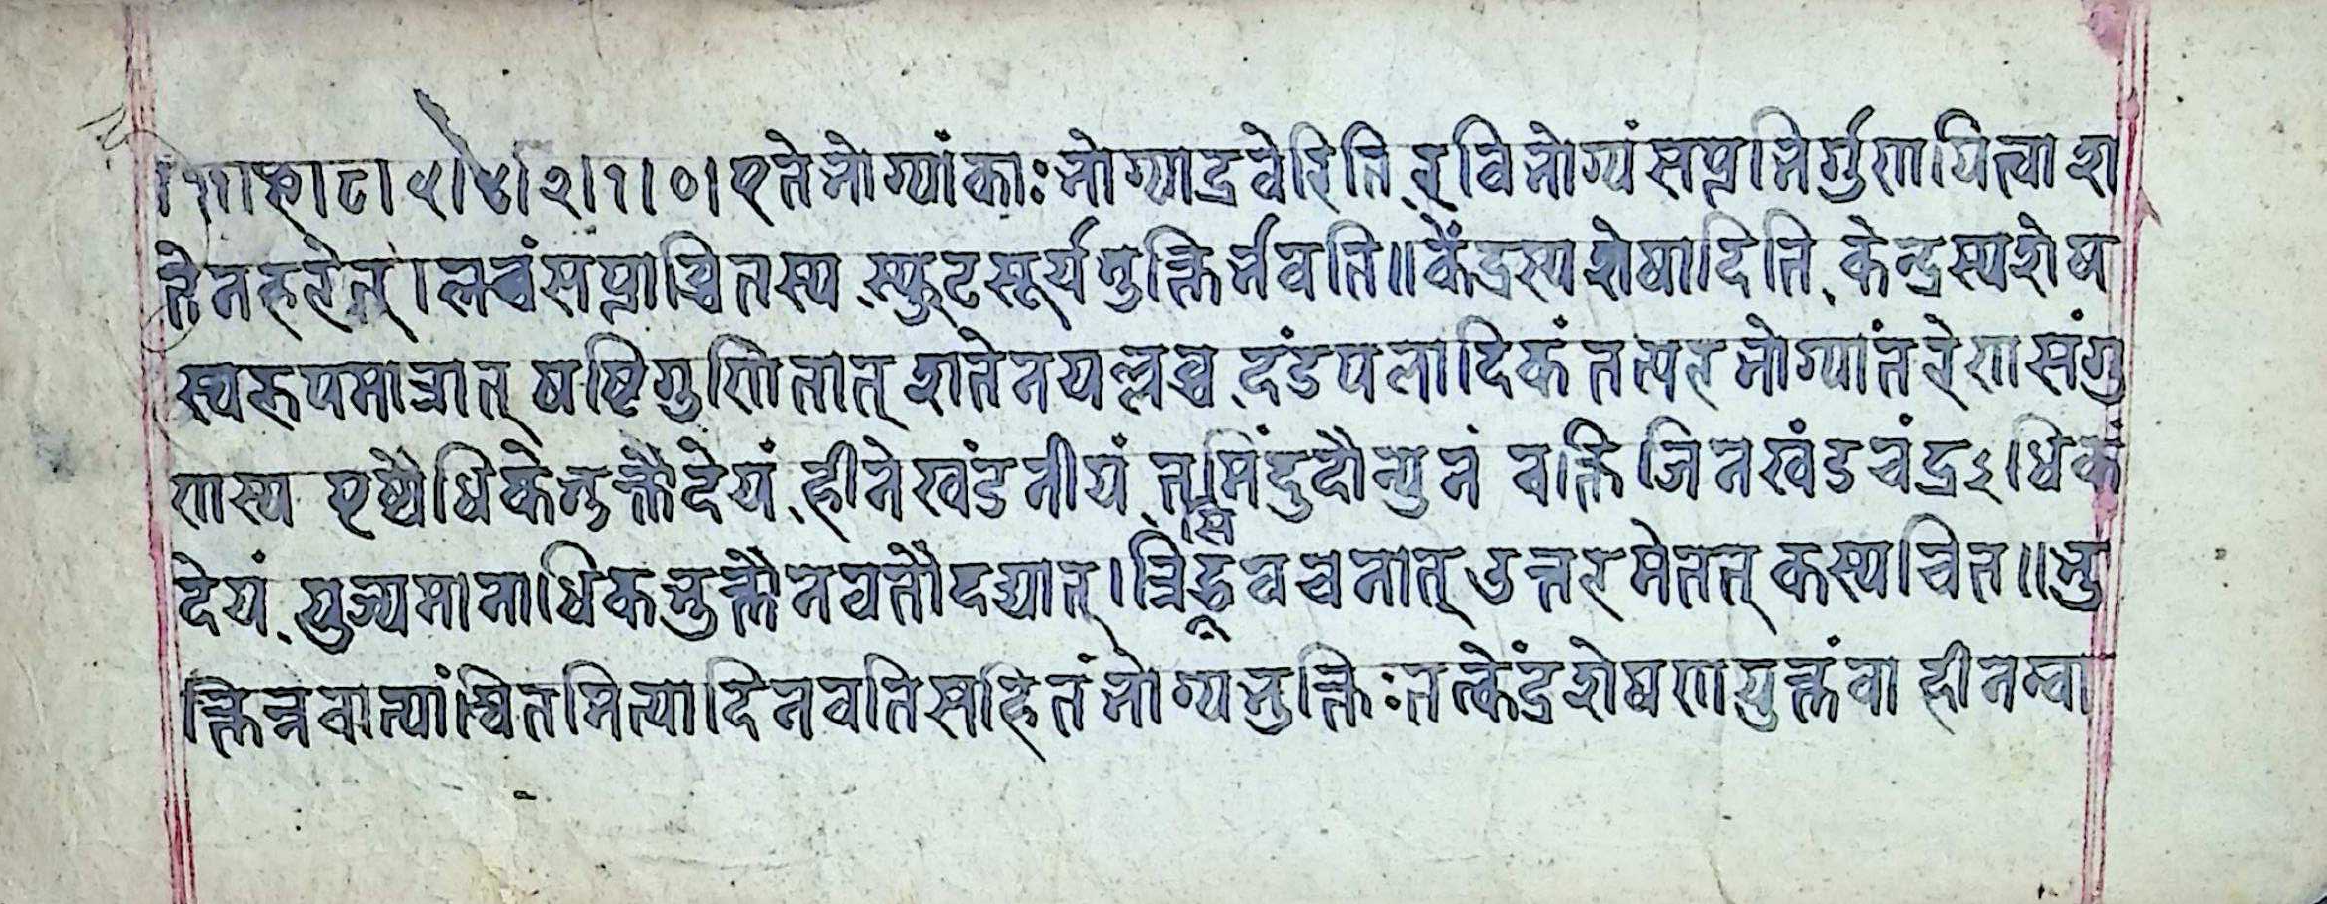 ।११।९।८।५।४।२।१।०।एते भोग्यांकाः भोग्याद्रवेरिति रविभोग्यं सप्तभिर्गुणायित्वा श
तेन हरेत्।लब्धं सप्ताश्वितस्य स्फुटसूर्यभुक्तिर्भवति॥केंद्रस्य शेषादिति केन्द्रस्य शेष
स्वरूपमात्रात् षष्टिगुणितात् शतेन यल्लब्ध दंडपलादिकं तत्परभोग्यांतरेण संगु
णास्य एष्यैधिके भुक्तौ देयं हीने खंडनीयं त्वमिंदुदौन्युनं वक्ति जिनखंडचंद्रऽधिकं
देयं युज्यमानाधिकभुक्तौ नवतौ दद्यात्।त्रिद्भूवचनात् उत्तरमेतत् कस्यचित॥भु
क्तिन्नवात्यांश्वितमित्यादि नवतिसहितं भोग्यभुक्तिः तत्केंद्रशेषणायुक्तंवा हीनन्वा